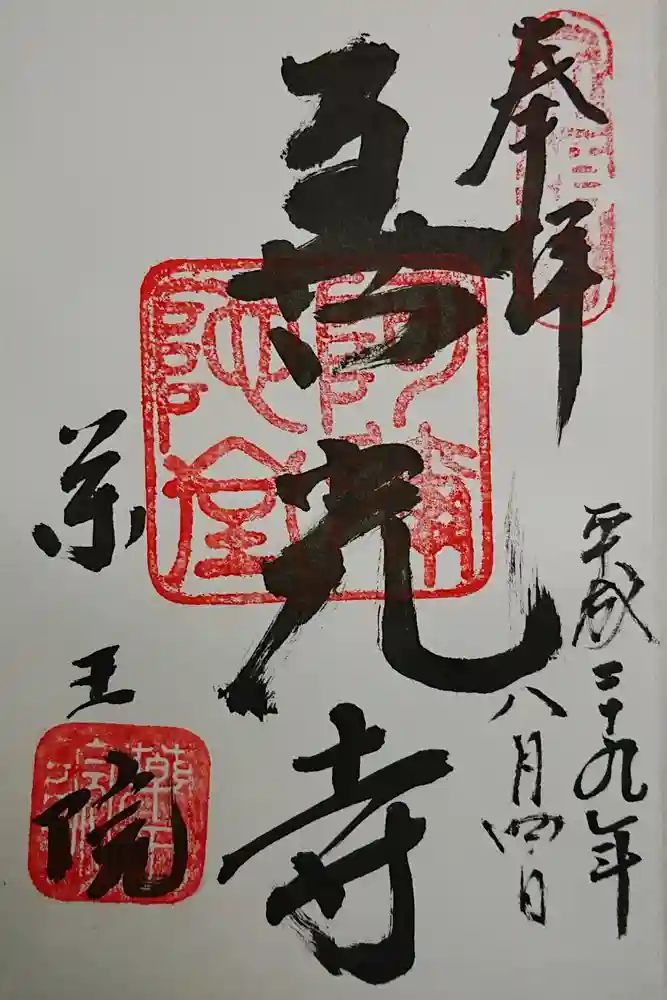 奉拝
善光寺
平成二十九年
八月四日
薬王院